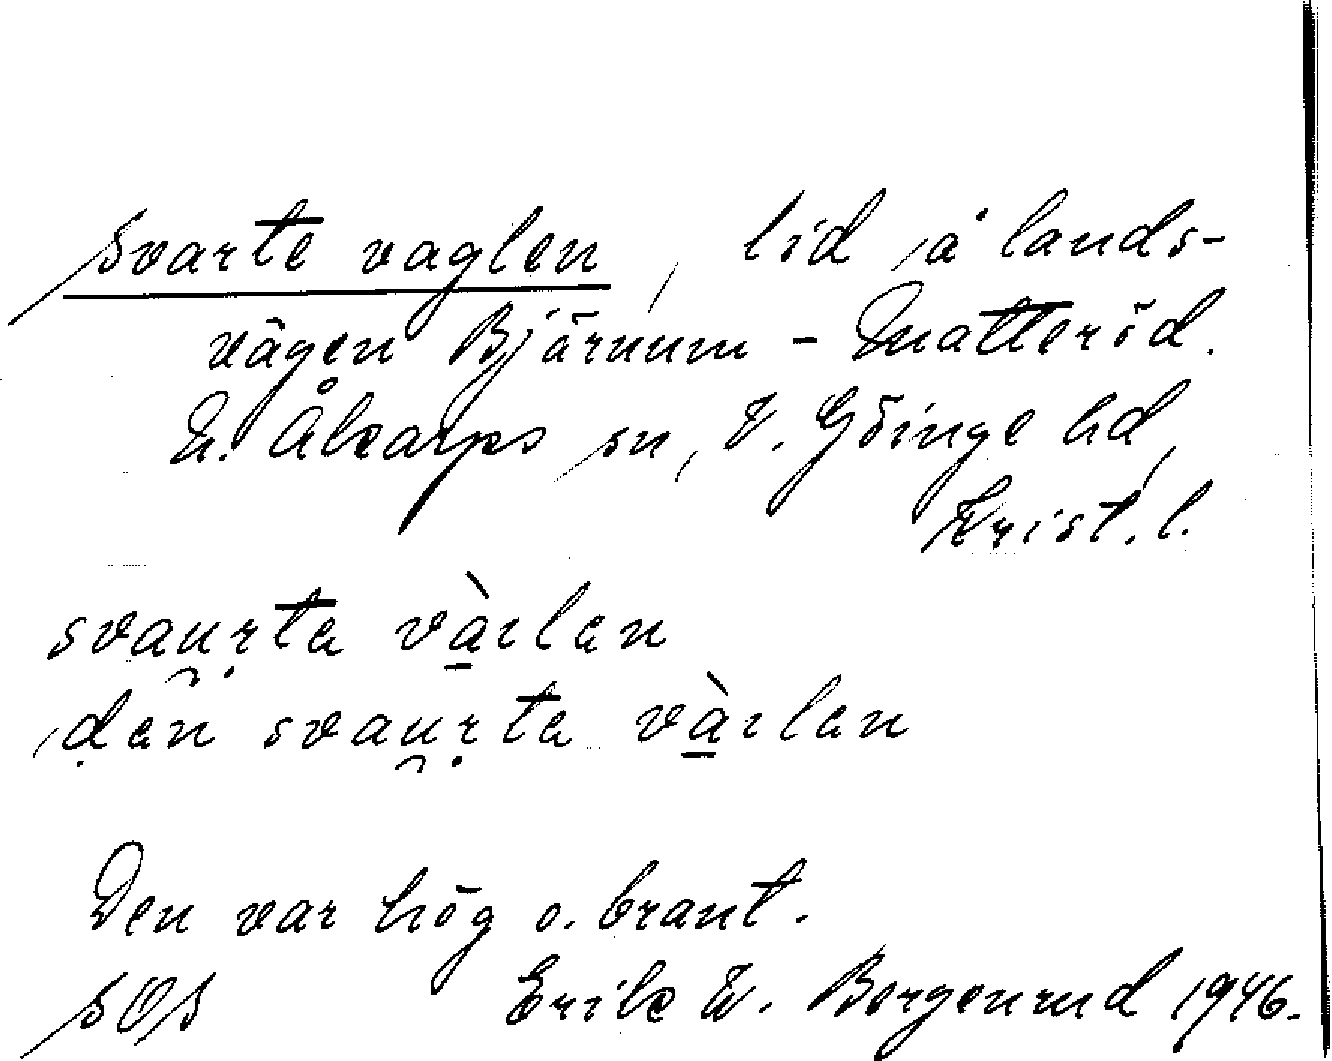 Svarte vaglen, lid å lands-
vägen Bjärnum - Matteröd.
N. Åkarps sn, V. Göinge hd,
Krist. l.
svau̯ṛta và̱ɩlan
dan svau̯ṛta và̱ɩlan
Den var hög o. brant.
SOS Erik W. Bergenrud 1946.